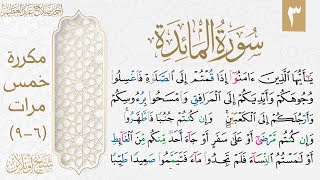 ٣
سورة المائدة
مكررة
خمس
مرات
(٦-٩)
يَٰٓأَيُّهَا ٱلَّذِينَ ءَامَنُوٓا۟ إِذَا قُمْتُمْ إِلَى ٱلصَّلَوٰةِ فَٱغْسِلُوا۟
وُجُوهَكُمْ وَأَيْدِيَكُمْ إِلَى ٱلْمَرَافِقِ وَٱمْسَحُوا۟ بِرُءُوسِكُمْ
وَأَرْجُلَكُمْ إِلَى ٱلْكَعْبَيْنِ وَإِن كُنتُمْ جُنُبًا فَٱطَّهَّرُوا۟
وَإِن كُنتُم مَّرْضَىٰٓ أَوْ عَلَىٰ سَفَرٍ أَوْ جَآءَ أَحَدٌ مِّنكُم مِّنَ ٱلْغَآئِطِ
أَوْ لَٰمَسْتُمُ ٱلنِّسَآءَ فَلَمْ تَجِدُوا۟ مَآءً فَتَيَمَّمُوا۟ صَعِيدًا طَيِّبًا